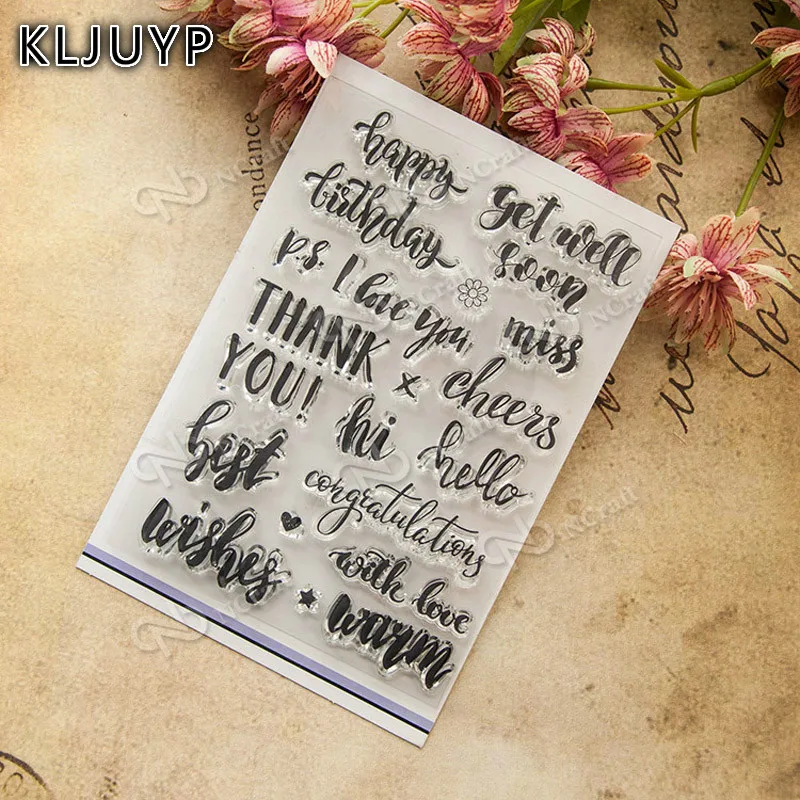 KLJUYP
happy
birthday
get well
soon
p.s. I love you
miss
THANK
YOU!
x
cheers
hi
hello
best
wishes
congratulations
with love
warm
NCraft
NCraft
NCraft
NCraft
NCraft
ndance